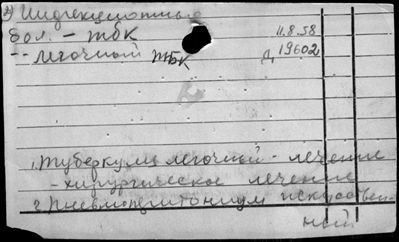 2) Инфекционные
бол. - тбк 11.8.58
-- легочный тбк Д 19602
1. Туберкулез легочной - лечение
- хирургическое лечение
2. Пневмоперитониум искусствен-
ный